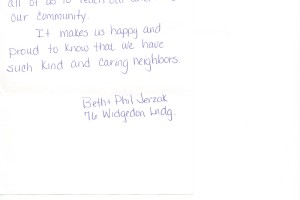 all of us to reach out
our community.
It makes us happy and
proud to know that we have
such kind and caring neighbors.
Beth + Phil Jerzak
76 Widgedon Lndg.